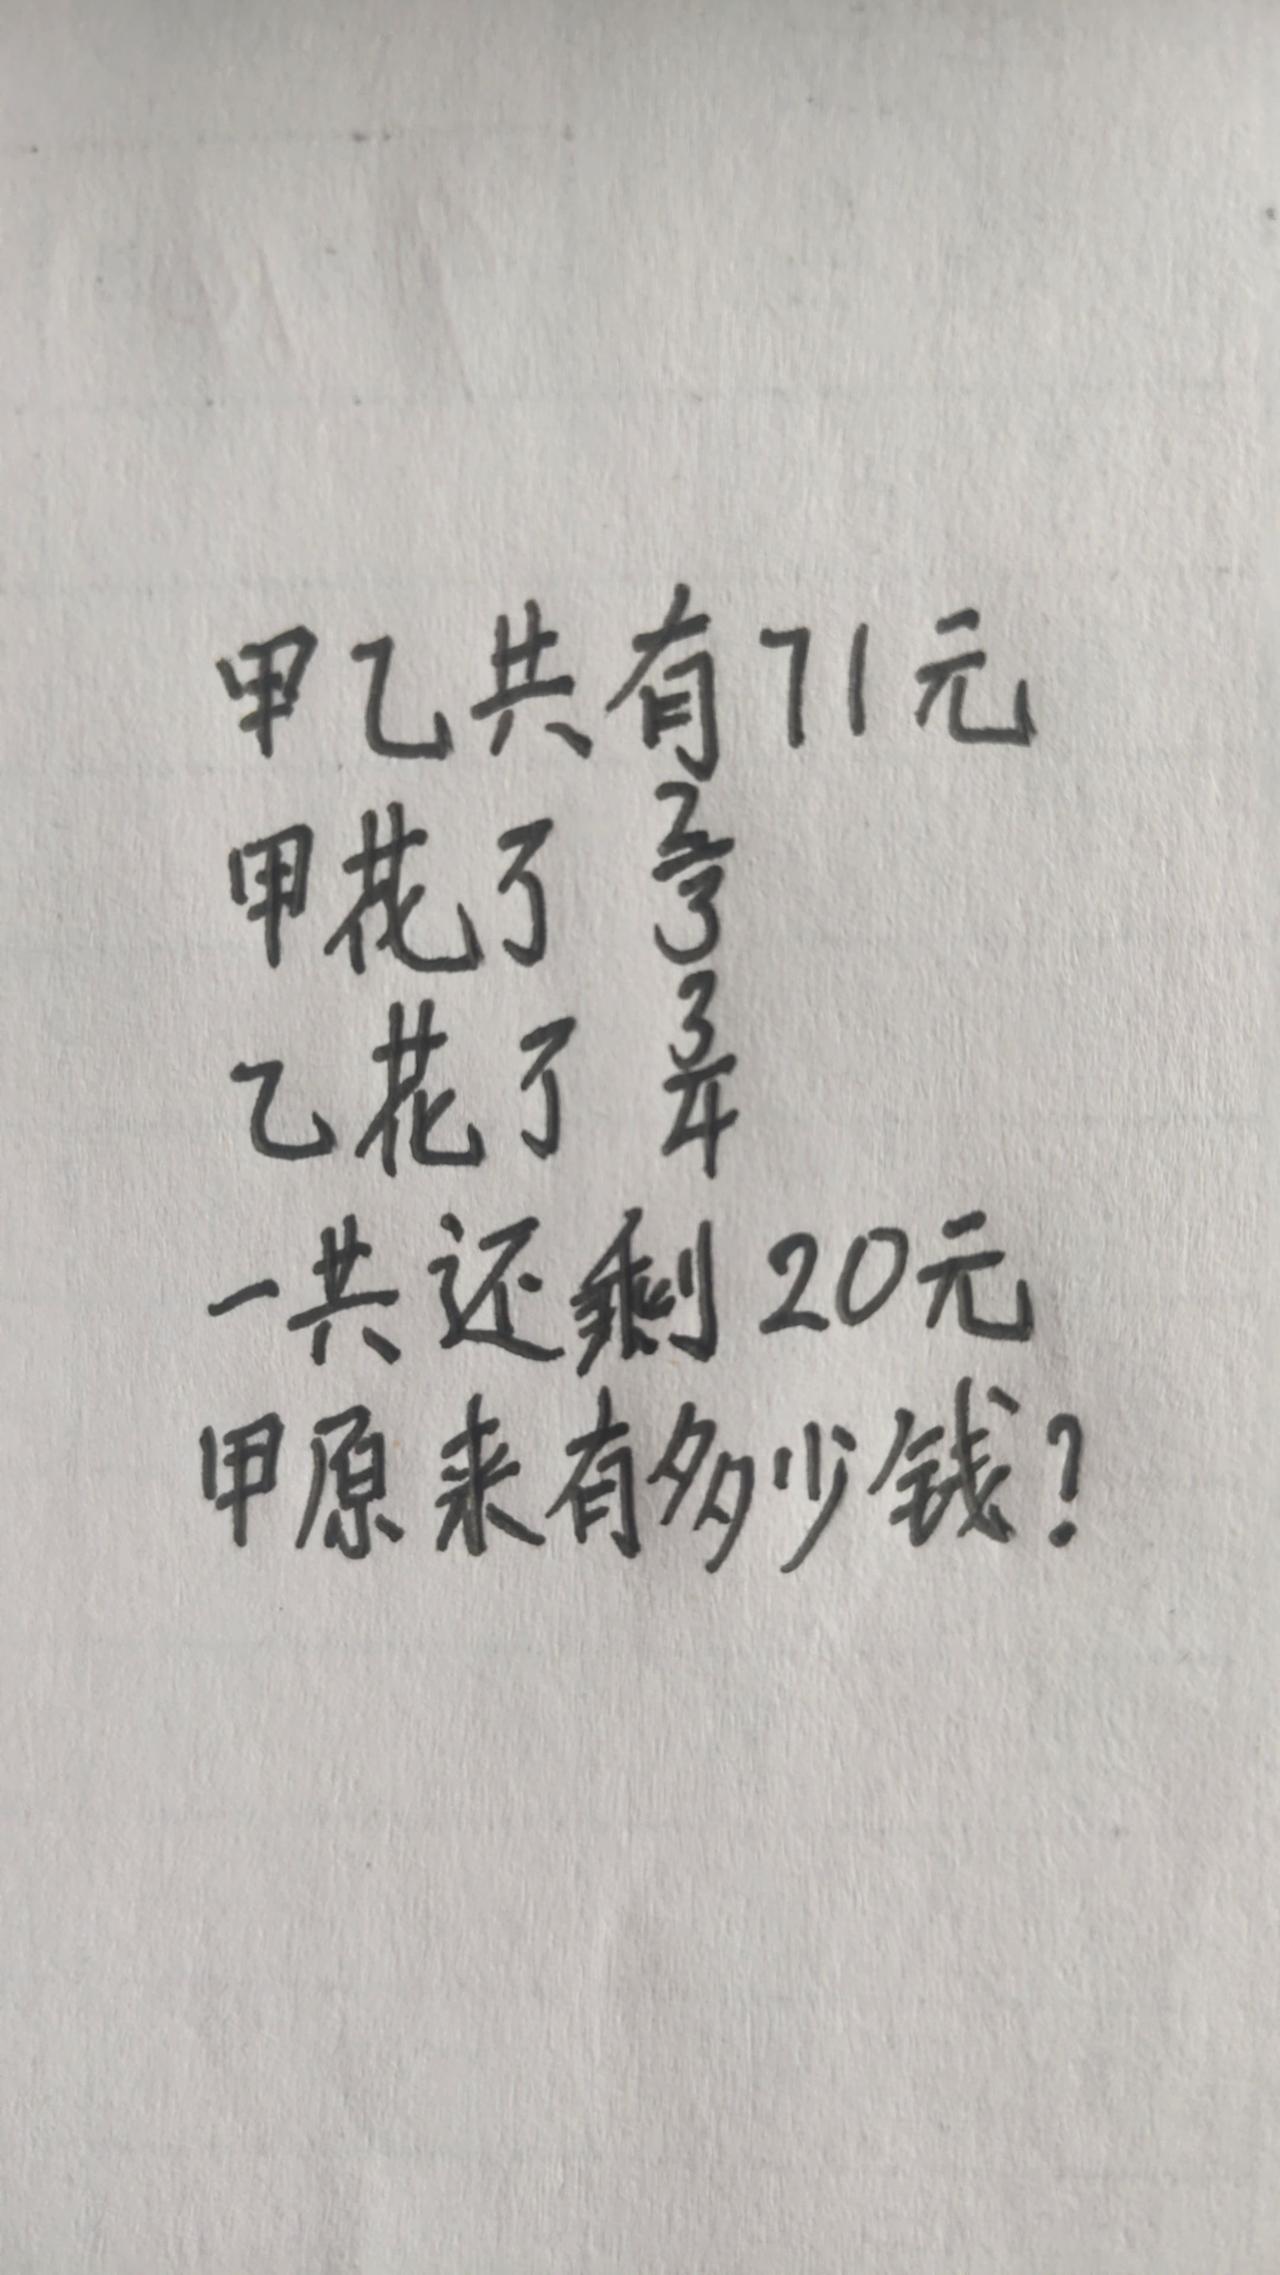 甲乙共有71元
甲花了 2/3
乙花了 3/4
一共还剩20元
甲原来有多少钱?